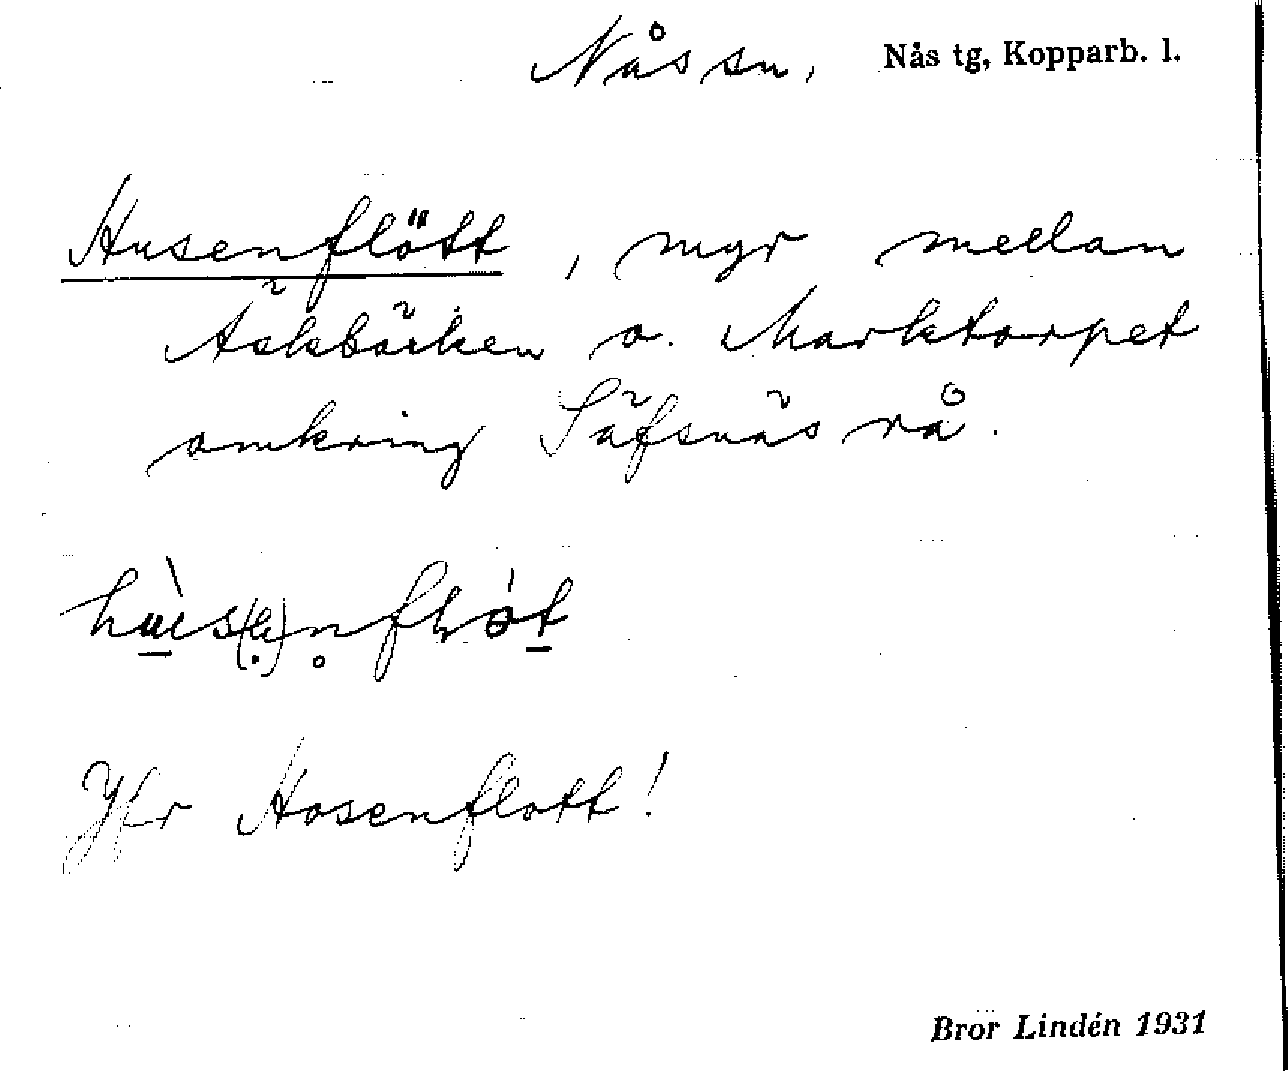 Nås sn, Nås tg, Kopparb. l.
Husenflött, myr mellan
Äskbäcken o. Marktorpet
omkring Säfsnäs rå.
Jfr Hosenflott!
Bror Lindén 1931